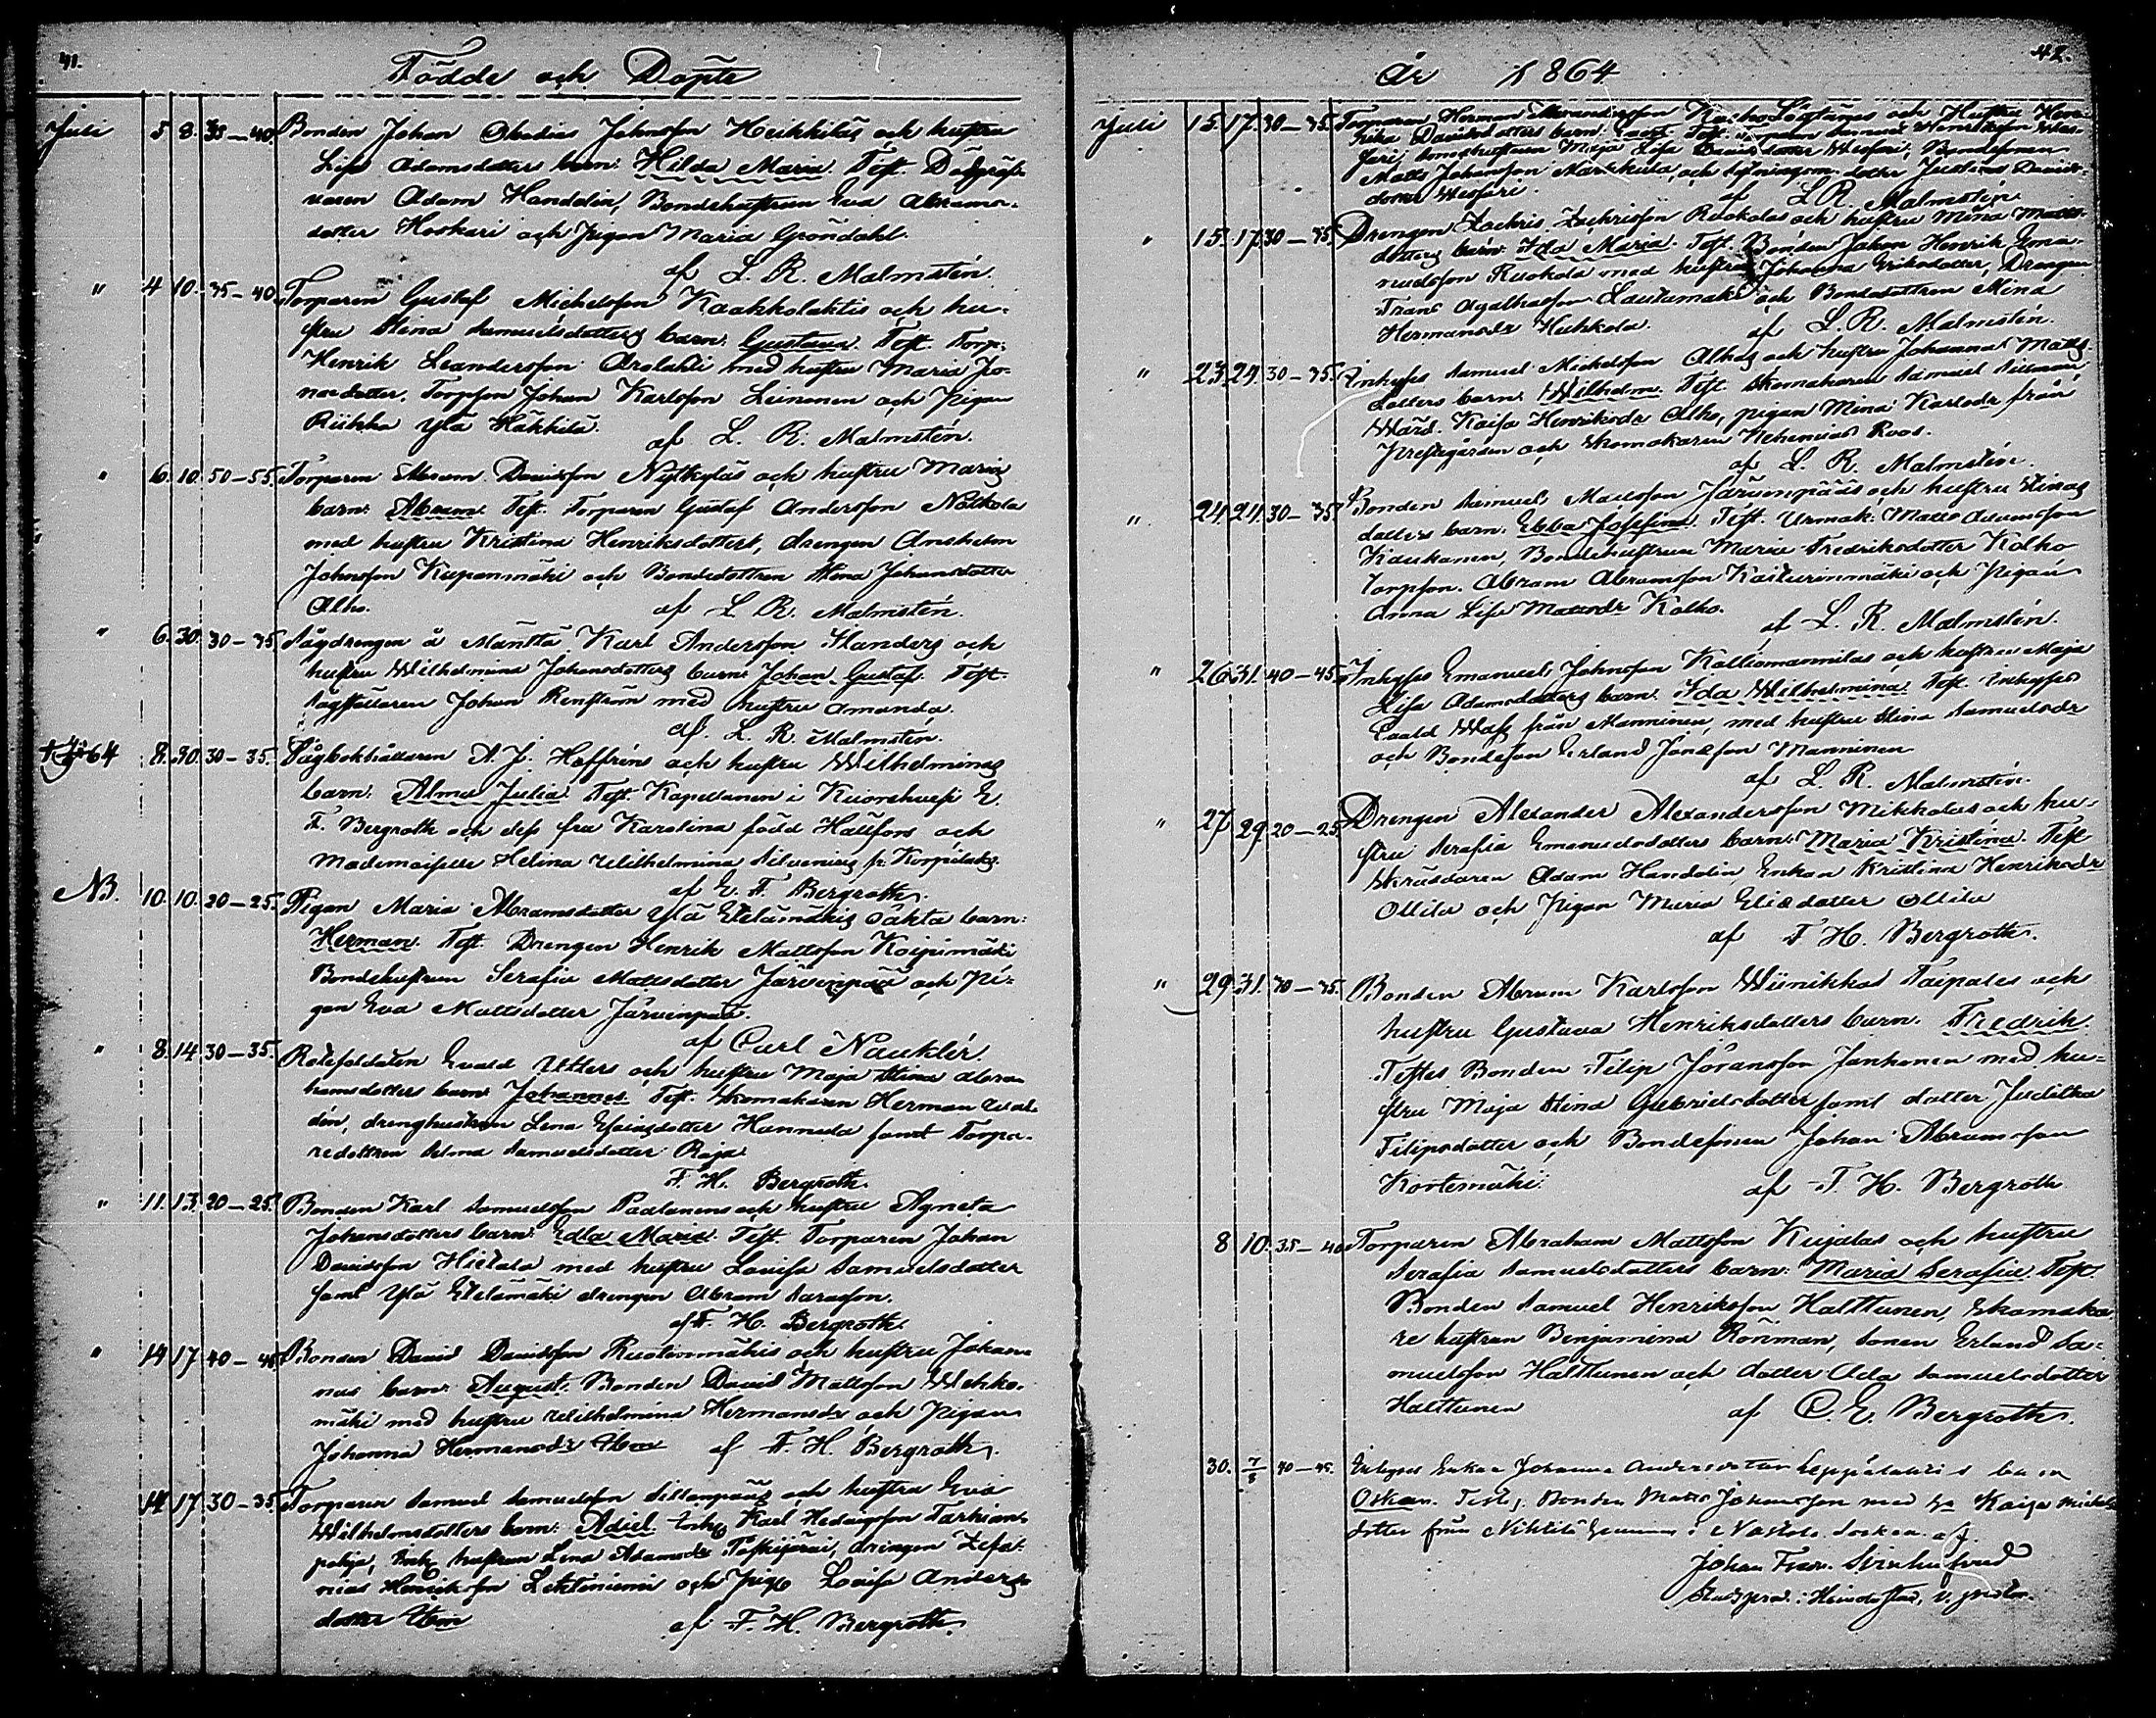 41.
Födde och Döpte
Juli 5. 8. 35-40. Bonden Johan Obadias Johnsson Heikkilas och hustru
Lisa Adamsdotters barn: Hilda Maria. Test. Dödgräf-
varen Adam Handolin, Bondehustrun Eva Abrams-
dotter Hoskari och Pigan Maria Gröndahl.
af L. R. Malmstén.
" 4 10. 35-40 Torparen Gustaf Michelsson Kaakkolaktis och hu-
stru Stina Samuelsdotters barn: Gustava. Test. Torp.
Henrik Leandersson Arolahti med hustru Maria Jo-
nasdotter, Torpson Johan Karlsson Leinonen och Pigan
Riikka Ylä Häkkilä.
af L. R. Malmstén.
" 6. 10. 50-55. Torparen Abram Davidsson Nytkyläs och hustru Marias
barn: Abram. Test. Torparen Gustaf Andersson Nälkola
med hustru Kristina Henriksdotter, drengen Anshelm
Johnsson Kuparimäki och Bondedottren Stena Johansdotter
Alho.
af L. R. Malmstén.
" 6. 30. 30-35 Sågdrengen å Mänttä Karl Andersson Standers och
hustru Wilhelmina Johansdotters barn: Johan Gustaf. Test.
Sågställaren Johan Renström med hustru Amanda.
af L. R. Malmstén.
64 8. 30. 30-35. Sågbokhållaren A. J. Hoffréns och hustru Wilhelminas
barn: Alma Julia. Test. Kapellanen i Kuorehvesi E.
F. Bergroth och dess fru Karolina född Hällfors och
Mademoiselle Helina Wilhelmina Silvenius fr. Korpilaks.
af E. F. Bergroth.
NB. 10. 10. 20-25. Pigan Maria Abramsdotter Ylä Etelämäkis oäkta barn:
Herman. Test. Drengen Henrik Mattsson Koipimäki
Bondehustrun Serafia Mattsdotter Järvenpää och Pi-
gan Eva Mattsdotter Järvenpää.
af Carl Nauklér.
" 8. 14. 30-35. Rotesoldaten Evald Utters och hustru Maja Stina Abra-
hamsdotters barn: Johannes. Test. Skomakaren Herman Wal-
dén, drenghustrun Lena Esaiasdotter Hannula samt Torpa-
redottren Selma Samuelsdotter Raja.
F. H. Bergroth.
" 11. 13. 20-25. Bonden Karl Samuelsson Paalanens och hustru Agneta
Johansdotters barn: Edla Maria. Test. Torparen Johan
Davidsson Hietala med hustru Lovisa Samuelsdotter
samt Ylä Etelämäki drengen Abram Sarasson.
af F. H. Bergroth.
" 14 17. 40-45. Bonden David Davidsson Ruolinmäkis och hustru Johan-
nas barn: August. Bonden David Mattsson Wehko-
mäki med hustru Wilhelmina Hermansdr och Pigan
Johanna Hermansdr
af F. H. Bergroth.
14. 17. 30-35 Torparen Samuel Samuelsson Sillanpääs och hustru Eva
Wilhelmsdotters barn: Adiel. Karl Hedvigsson Tarhian-
pohja, hustrun Lena Adamsdr Paskijärvi, drengen Zefa-
nias Henriksson Lehtiniemi och Lovisa Anders-
dotter
af F. H. Bergroth.
42.
År 1864
Juli 15. 17. 30-35. Torparen Herman och Hustru Hen-
rika Davidsdotters barn: Test.
Maja Lisa Bondesonen
Matts Johansson Markkula, och dotter Justina Davids-
dotter
af L. R. Malmstén.
" 15. 17. 30-35 Drengen Zachris Zachrisson Ruokolas och hustru Mina Matts-
dotters barn: Ida Maria. Test. Bonden Johan Henrik Ema-
nuelsson Ruokola med hustru Johanna Eriksdotter, Drengen
Frans Agathusson Lautamaki och Bondedottren Mina
Hermansdr Huhkola.
af L. R. Malmstén.
" 23. 24. 30-35. Inhyses Samuel Michelsson Alhos och hustru Johanna Matts-
dotters barn: Wilhelm. Test. Skomakaren Samuel
Kaisa Henriksdr Alho, pigan Mina Karlsdr från
Prestgården och Skomakaren Nehemias Roos.
af L. R. Malmstén.
" 24. 24. 30-35. Bonden Samuel Mattsson Järvenpääs och hustru Stinas
dotters barn: Ebba Josefina. Test. Urmak. Matts Adamsson
Kaukanen, Bondehustrun Maria Fredriksdotter Kolho
torpson. Abram Abramsson Kaiturinmäki och Pigan
Anna Lisa Mattsdr Kolho.
af L. R. Malmstén.
" 26. 31. 40-45. Inhyses Emanuel Johnsson Kalliomannilas och hustru Maja
Lisa Adamsdotters barn: Ida Wilhelmina. Test. Inhyses
Evald Wass från Manninen, med hustru Stina Samuelsdr
och Bondeson Erland Jonasson Manninen
af L. R. Malmstén.
" 27 29. 20-25. Drengen Alexander Alexandersson Mikkolas och hu-
stru Serafia Emanuelsdotters barn: Maria Kristina. Test
Skräddaren Adam Handolin, Enkan Kristina Henriksdr
Ollila och Pigan Maria Eliedotter Ollila
af F. H. Bergroth.
" 29. 31. 30-35. Bonden Abram Karlsson Wiinikkas Taipales och
hustru Gustava Henriksdotters barn. Fredrik.
Testes Bonden Filip Göransson Jankonen med hu-
stru Maja Stina Gabrielsdotter samt dotter Juditha
Filipsdotter och Bondesonen Johan Abramsson
Kortemäki.
af F. H. Bergroth
8 10. 35-40 Torparen Abraham Mattsson Kujalas och hustru
Serafia Samuelsdotters barn: Maria Serafia. Test.
Bonden Samuel Henriksson Halttunen, Skomaka-
re hustrun Benjamina Rönman, sonen Erland Sa-
muelsson Halttunen och dotter Ada Samuelsdotter
Halttunen
af C. E. Bergroth.
30. 7/8 40-45. Enkan Johanna Andersdotter Leppälahtis barn
Oskar. Test. Bonden Matts Johansson med h. Kaisa Michels-
dotter från i Nastola socken. af
Johan Fredr.